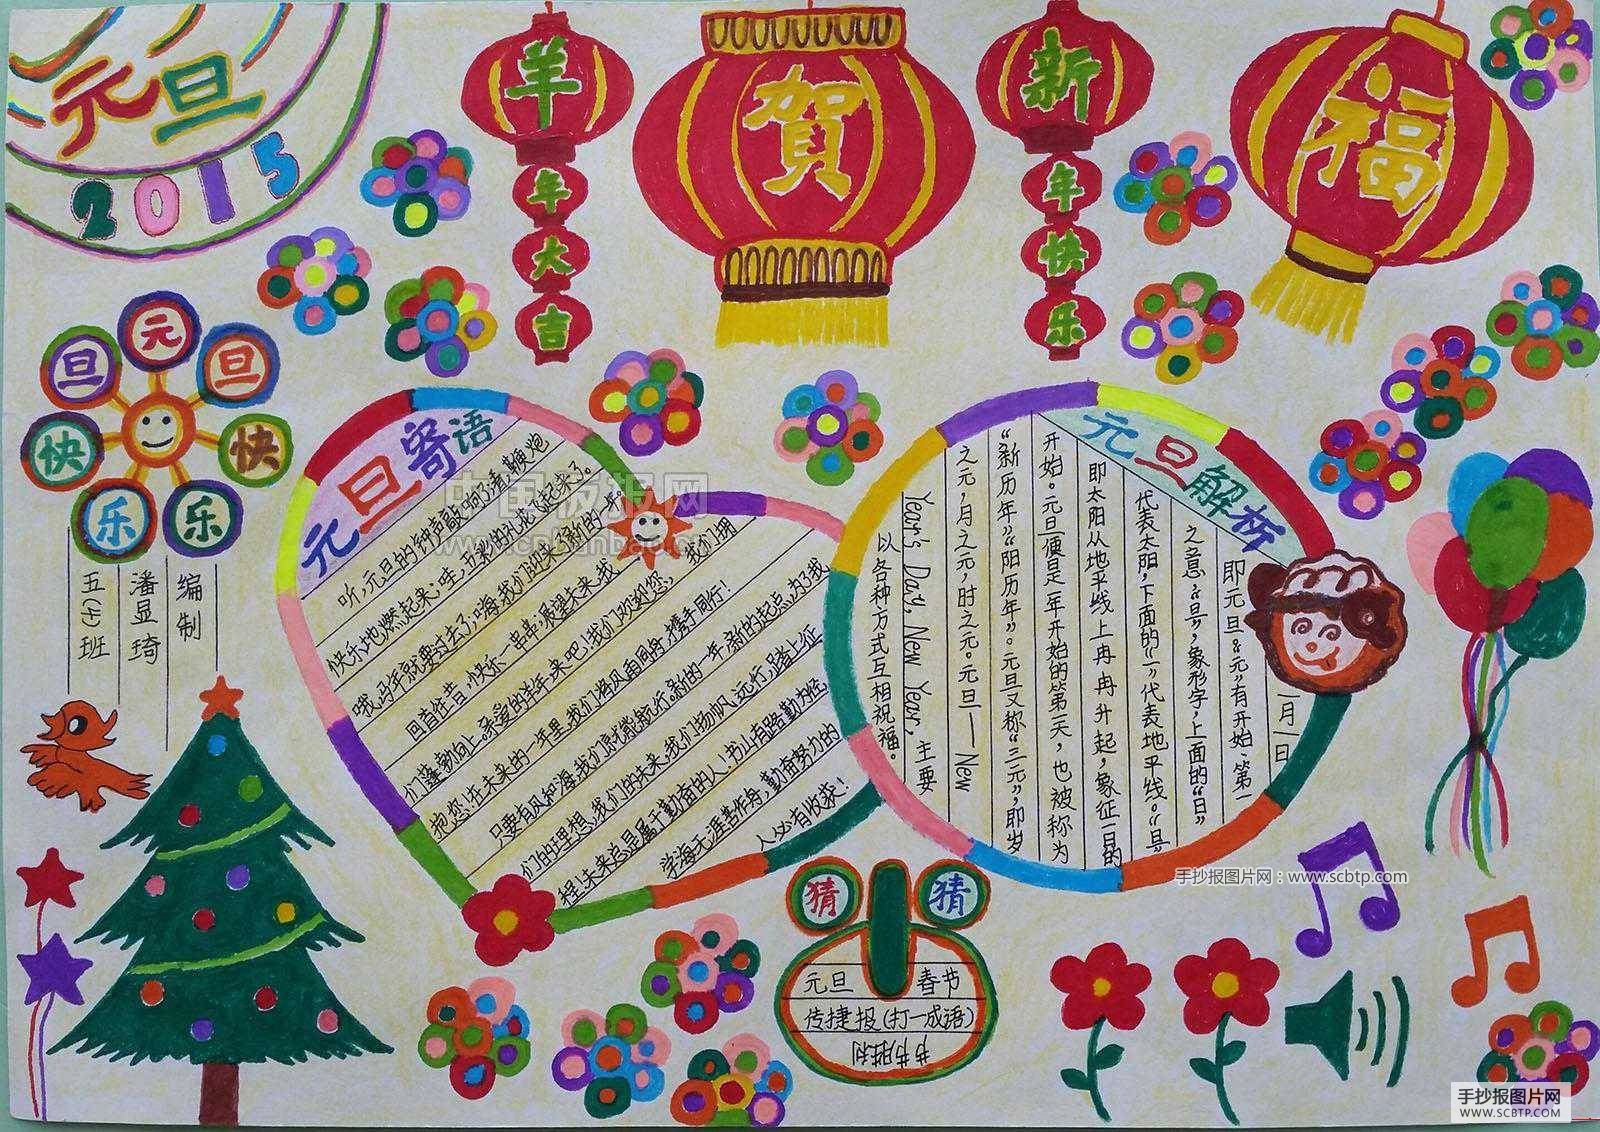 元旦
2015
羊年大吉
賀
新年快乐
福
元旦
元旦
快乐
快乐
编制
潘显琦
五(七)班
元旦寄语
听,元旦的钟声敲响了;看,鞭炮
快乐地燃起来;哇,五彩的礼花飞起来了。
哦,马年就要过去了;嗨,我们迎来了新的一年。
回首昨昔,快乐一串串,展望未来,我
们蓬勃向上。亲爱的羊年,来吧!我们欢迎您,我们拥
抱您!在未来的一年里,我们将风雨同舟,携手同行!
只要有风和海,我们就能航行。新的一年,新的起点,为了我
们的理想,我们的未来,我们扬帆远行,踏上征
程!未来总是属于勤奋的人!书山有路勤为径,
学海无涯苦作舟,勤奋努力的
人必有收获!
元旦解析
一月一日
即元旦。“元”有开始、第一
之意,“旦”,象形字,上面的“日”
代表太阳,下面的“一”代表地平线。“旦”
即太阳从地平线上冉冉升起,象征一日的
开始。元旦便是一年开始的第一天,也被称为
“新历年”“阳历年”。元旦又称“三元”,即岁
之元,月之元,时之元。元旦——New
Year's Day, New Year, 主要
以各种方式互相祝福。
猜猜
元旦 春节
传捷报(打一成语)
节节胜利
中国板报网
www.cnbanbao.cn
手抄报图片网:www.scbtp.com
手抄报图片网
WWW.SCBTP.COM